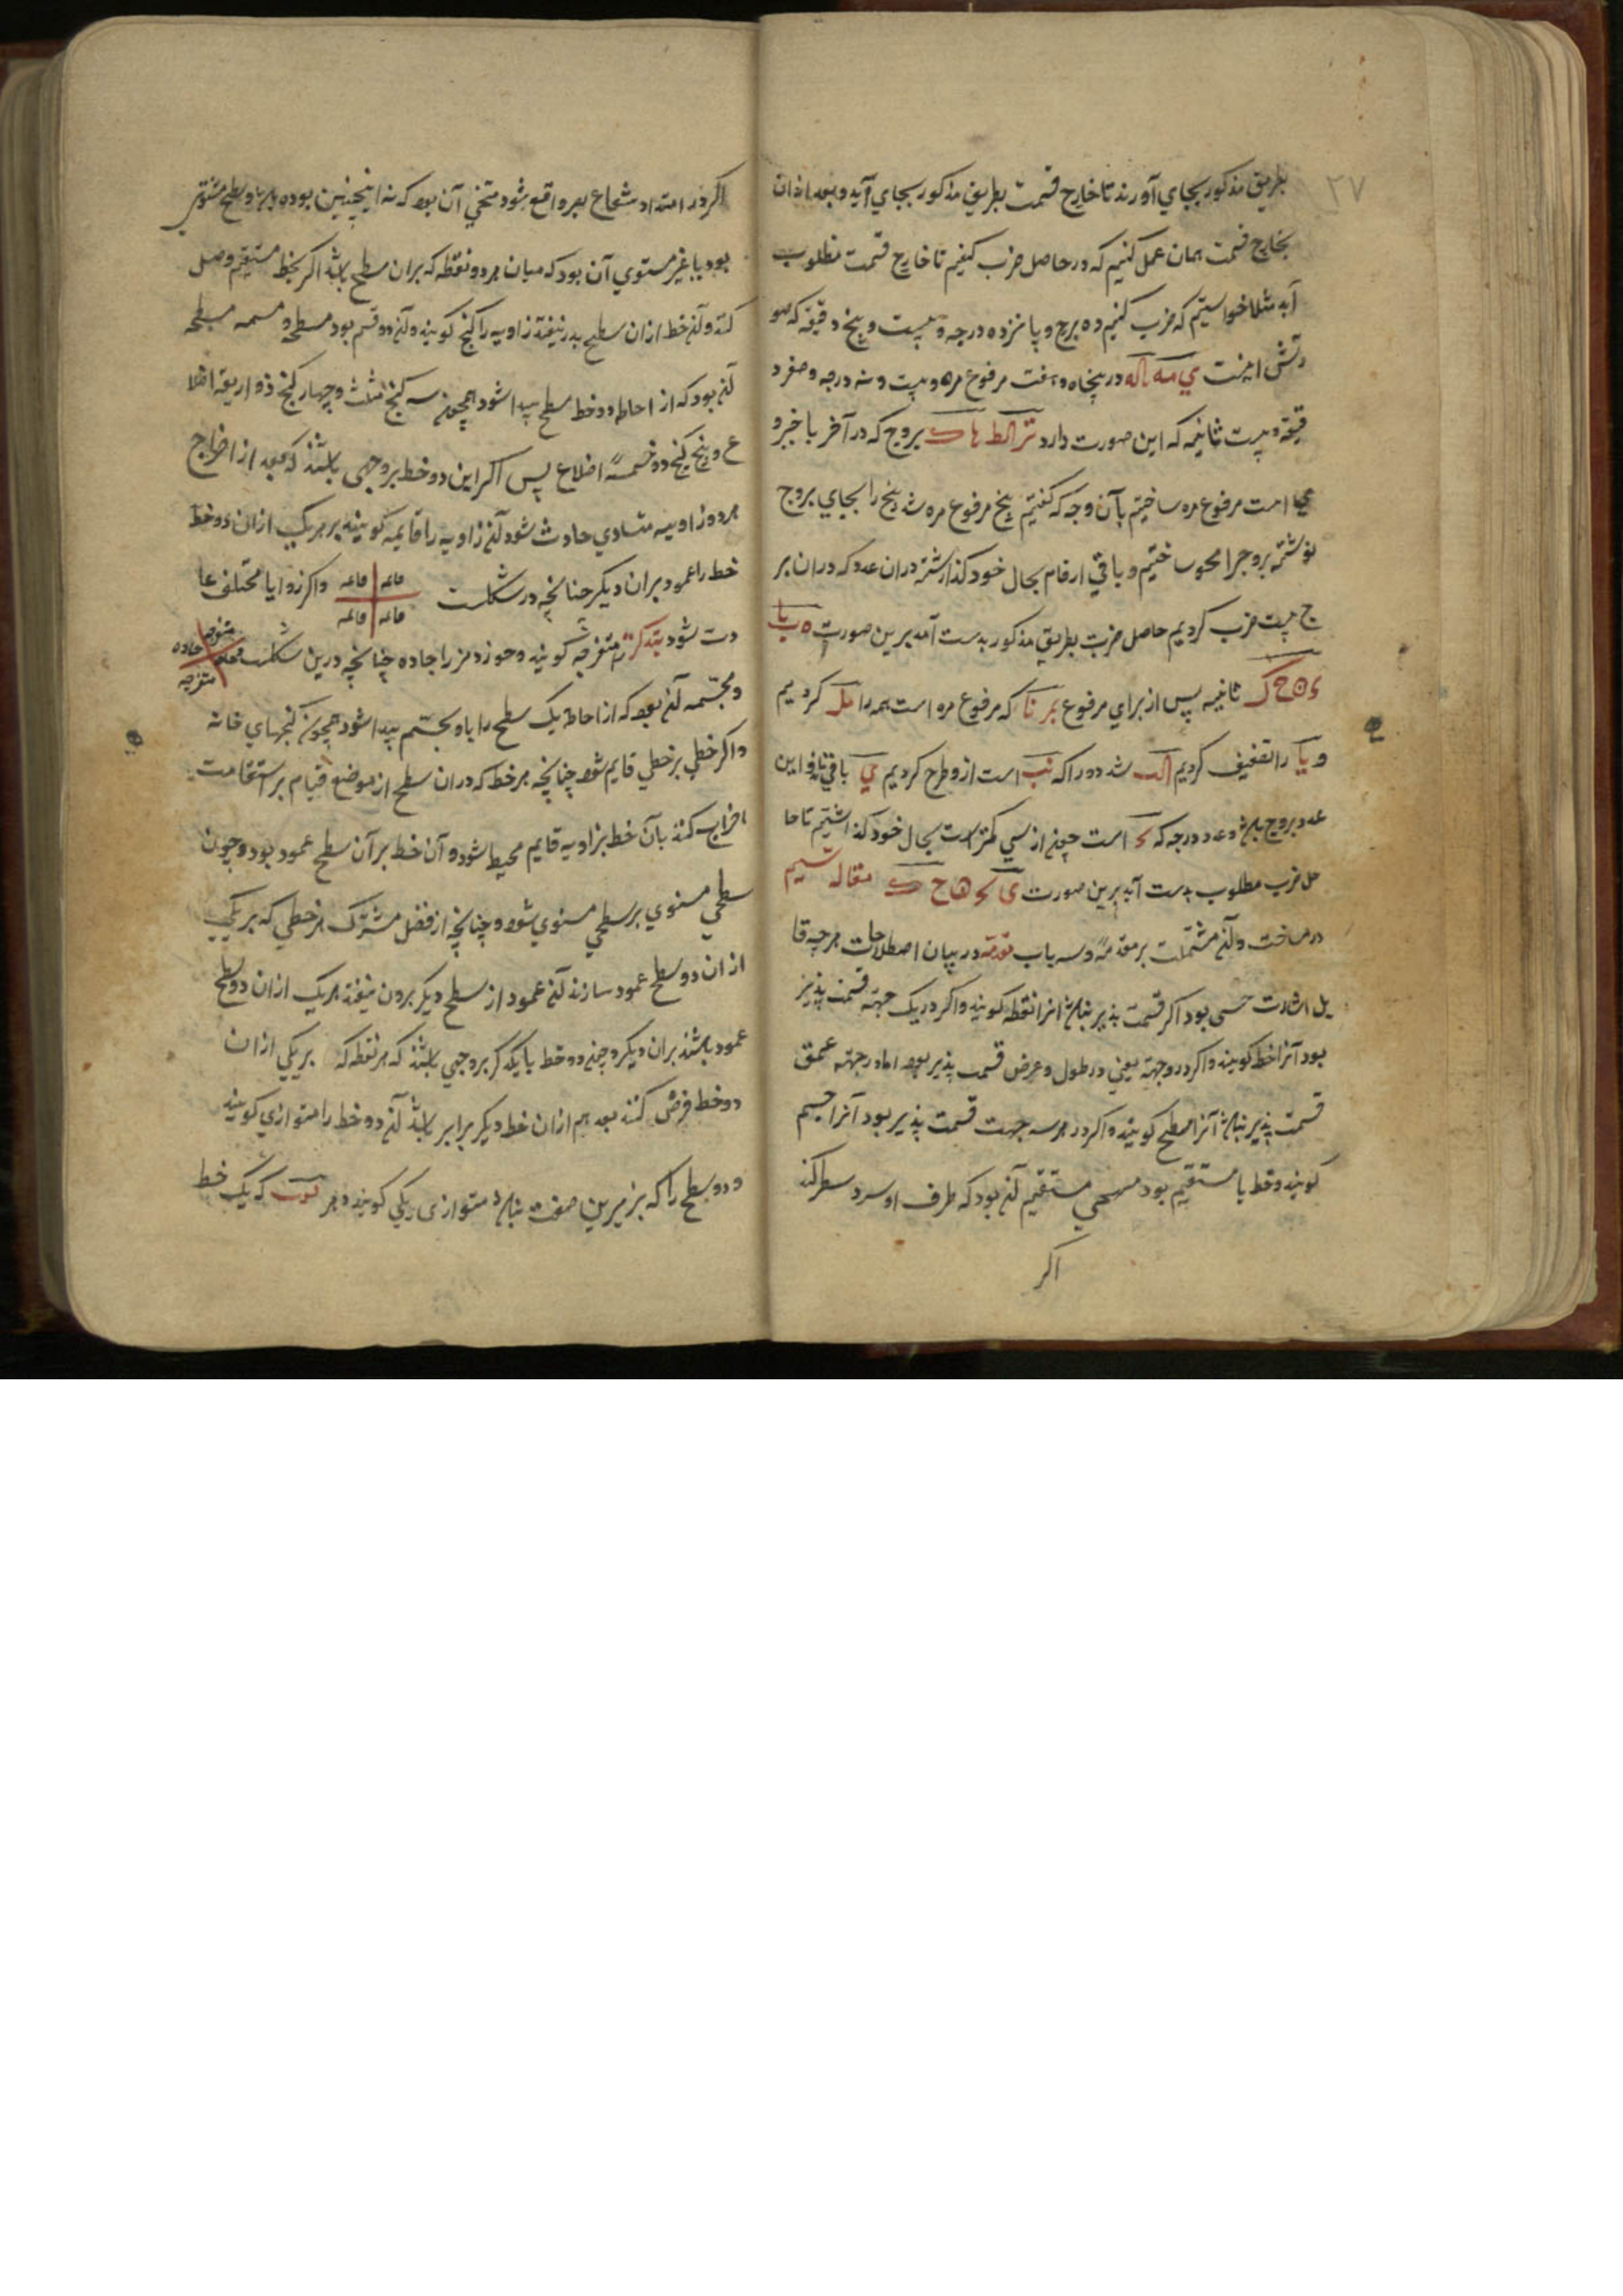 ۲۷
بطریق مذکور بجاي آورند تا خارج قسمت بطریق مذکور بجاي آید و بعد ازان
بخارج قسمت همان عمل کنیم که در حاصل ضرب کنیم تا خارج قسمت مطلوب
آید مثلا خواستیم که ضرب کنیم ده برج و پانزده درجه و بیست و پنج دقیقه که صو
رتش اینست در پنجاه و هفت مرفوع مره و بیست و نه درجه و صفر د
قیقه و بیست ثانیه که این صورت دارد بروج که در آخر با خیر و
است مرفوع مره ساختیم بآن وجه که گفتیم پنج مرفوع مره شد پنج را بجاي بروج
نوشته بروج را محو ساختیم و باقي ارقام بحال خود گذاشته دران عدد که دران بر
ج بیست ضرب کردیم حاصل ضرب بطریق مذکور بدست آمد برین صورت
ثانیه پس از براي مرفوع که مرفوع مره است همه را کردیم
و یا را تضعیف کردیم شد دور را که است ازو طرح کردیم باقي ماند و این
عدد بروج باشد و عدد درجه که است چون از سي کمتر است بحال خود گذاشتیم تا حا
صل ضرب مطلوب بدست آید برین صورت مقاله سیم
در مساحت و آن مشتملست بر مقدمه و سه باب مقدمه در بیان اصطلاحات هرچه قا
بل اشارت حسی بود اگر قسمت پذیر نباشد انرا نقطه کویند و اکر در یک جهة قسمت پذیر
بود آنرا خط کویند و اکر در دو جهة یعني در طول و عرض قسمت پذیر بود اما در جهة عمق
قسمت پذیر نباشد آنرا سطح کویند و اکر در هر سه جهت قسمت پذیر بود آنرا جسم
کویند و خط یا مستقیم بود مستقیم آن بود که طرف او
اکر
اکر در امتداد شعاع بصر واقع شود منحني آن بود که نه اینچنین بوده باشد و سطح مستوي
بود یا غیر مستوي آن بود که میان هر دو نقطه که بران سطح باشد اکر بخط مستقیم وصل
کنند آن خط ازان سطح بدر نیفتد زاویه را کنج کویند و آن دو قسم بود مسطحه و مجسمه مسطحه
آن بود که از احاطه دو خط سطح پیدا شود همچون سه کنج مثلث و چهار کنج ذو اربعة اضلا
ع و پنج کنج ذو خمسة اضلاع پس اکر این دو خط بر وجهی باشند که بعد از اخراج
هر دو زاویه متساوي حادث شود آن زاویه را قایمه کویند و هر یک ازان دو خط
خط را عمود بران دیکر چنانچه درین شکلست
قائمه قائمه
قائمه قائمه
و اکر زوایا مختلف حا
دث شود بزرکتر را منفرجه کویند و خوردتر را حاده چنانچه درین شکلست
منفرجه حاده
حاده منفرجه
و مجسمه آن بود که از احاطه یک سطح را یا و بجسم پیدا شود همچون کنجهاي خانه
و اکر خطي بر خطي قایم شود چنانچه هر خط که دران سطح از موضع قیام بر استقامت
اخراج کنند بآن خط بزاویه قایم محیط شود و آن خط بر آن سطح عمود بود و چون
سطحي مستوي بر سطحي مستوي شود چنانچه از فصل مشترک هر خطي که بر یکي
ازان دو سطح عمود سازند آن عمود از سطح دیکر برون نیفتد هر یک ازان دو سطح
عمود باشند بران دیکر و چون دو خط با یکدیکر بر وجهي باشند که هر نقطه که بر یکي ازان
دو خط فرض کنند بعد هم ازان خط دیکر برابر باشد آن دو خط را متوازي کویند
و دو سطح را که نیز برین صفت باشد متوازی کویند و هر که یک خط